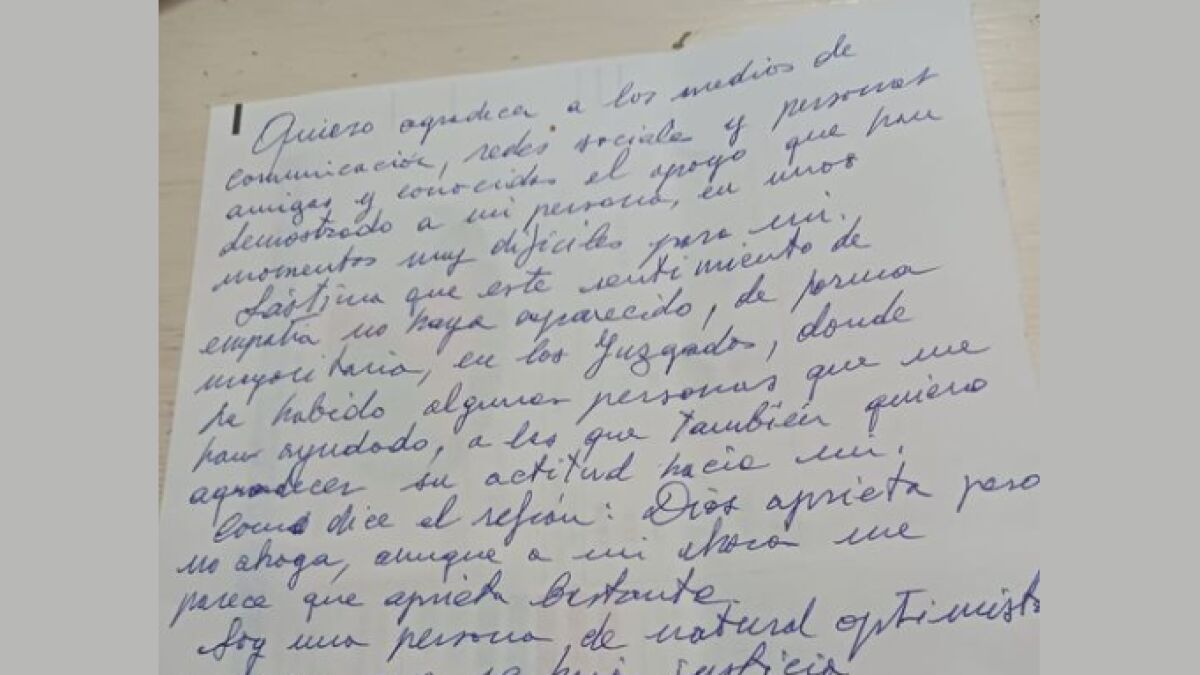 Quiero agradecer a los medios de
comunicación, redes sociales y personas
amigas y conocidas el apoyo que han
demostrado a mi persona, en unos
momentos muy difíciles para mi.
Lástima que este sentimiento de
empatía no haya aparecido, de forma
mayoritaria, en los Juzgados, donde
ha habido algunas personas que me
han ayudado, a las que también quiero
agradecer su actitud hacia mi.
Como dice el refrán: Dios aprieta pero
no ahoga, aunque a mi ahora me
parece que aprieta bastante.
Soy una persona de natural optimista
justicia